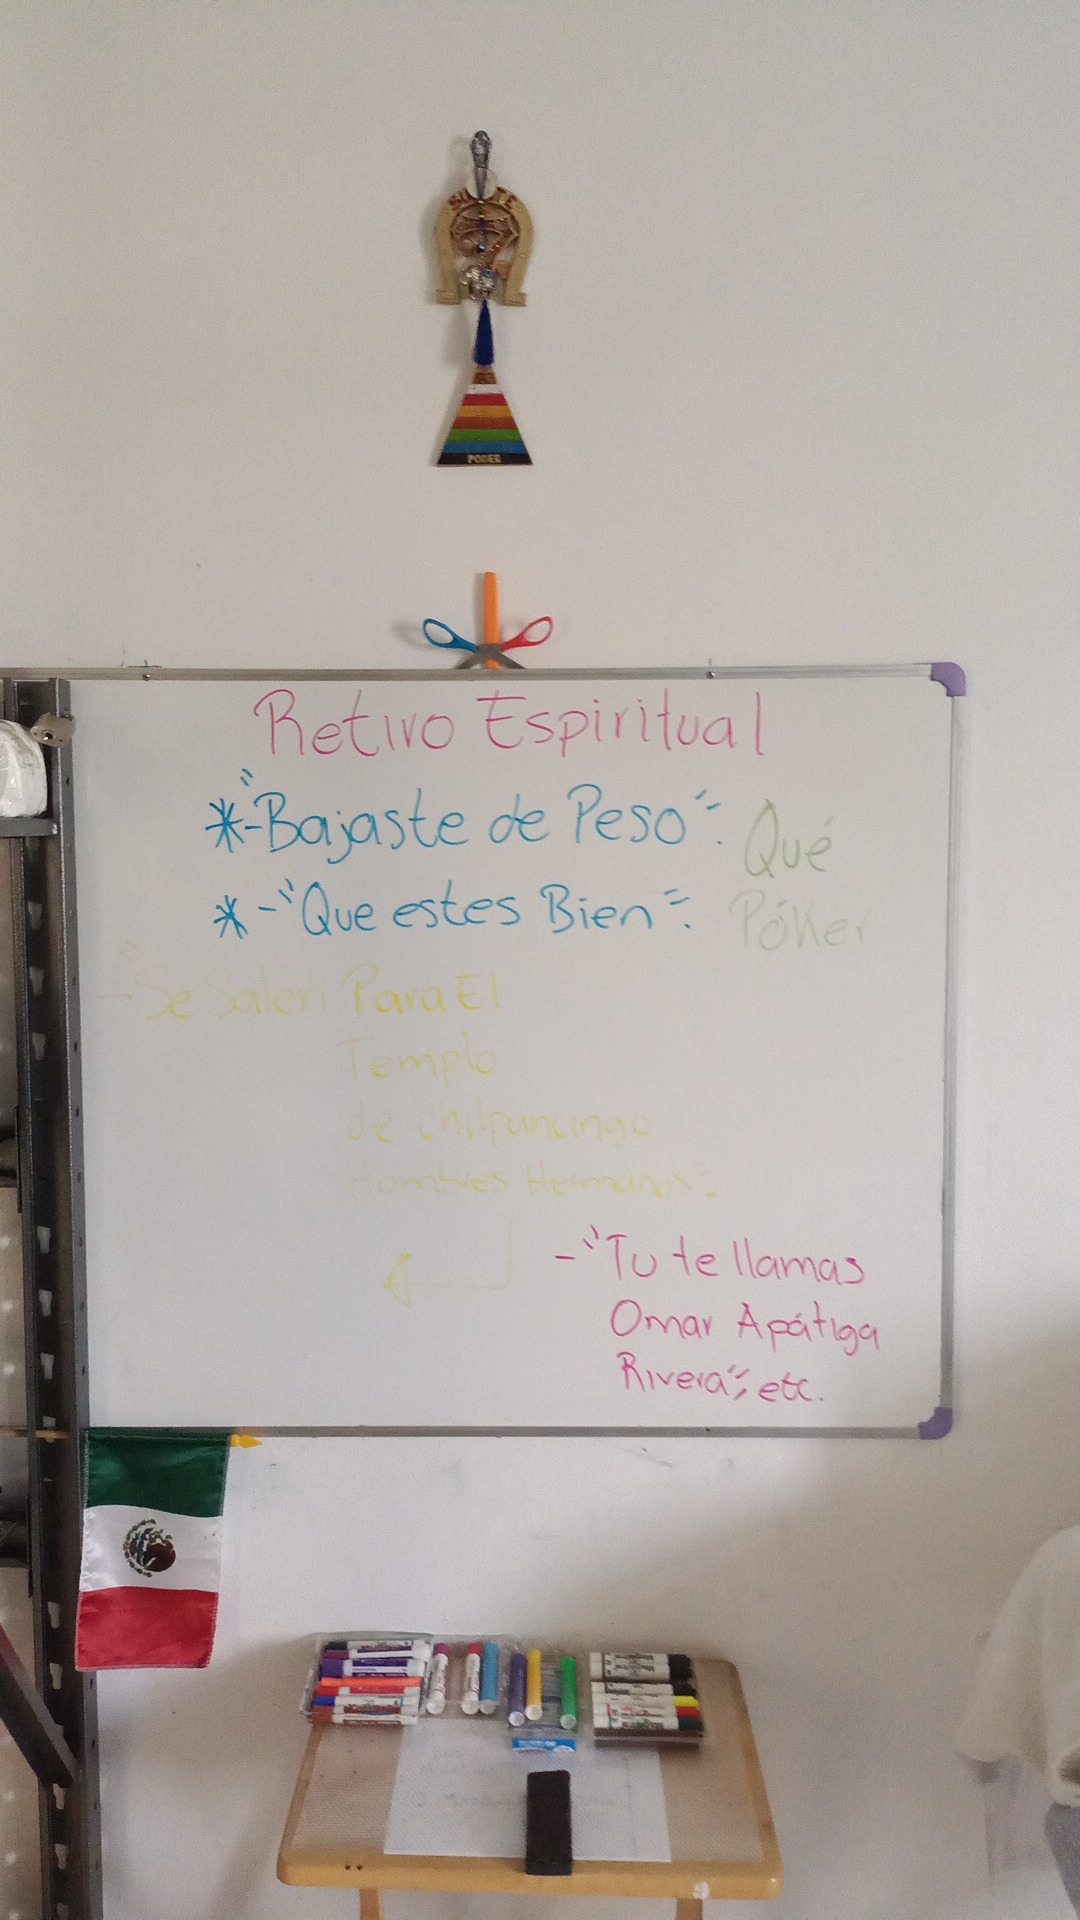 PODER
Retiro Espiritual
*-"Bajaste de Peso". Qué
*-"Que estes Bien". Póker
-"Se Salen Para El
Templo
de Chilpancingo
Hombres Hermanos".
-"Tu te llamas
Omar Apátiga
Rivera", etc.